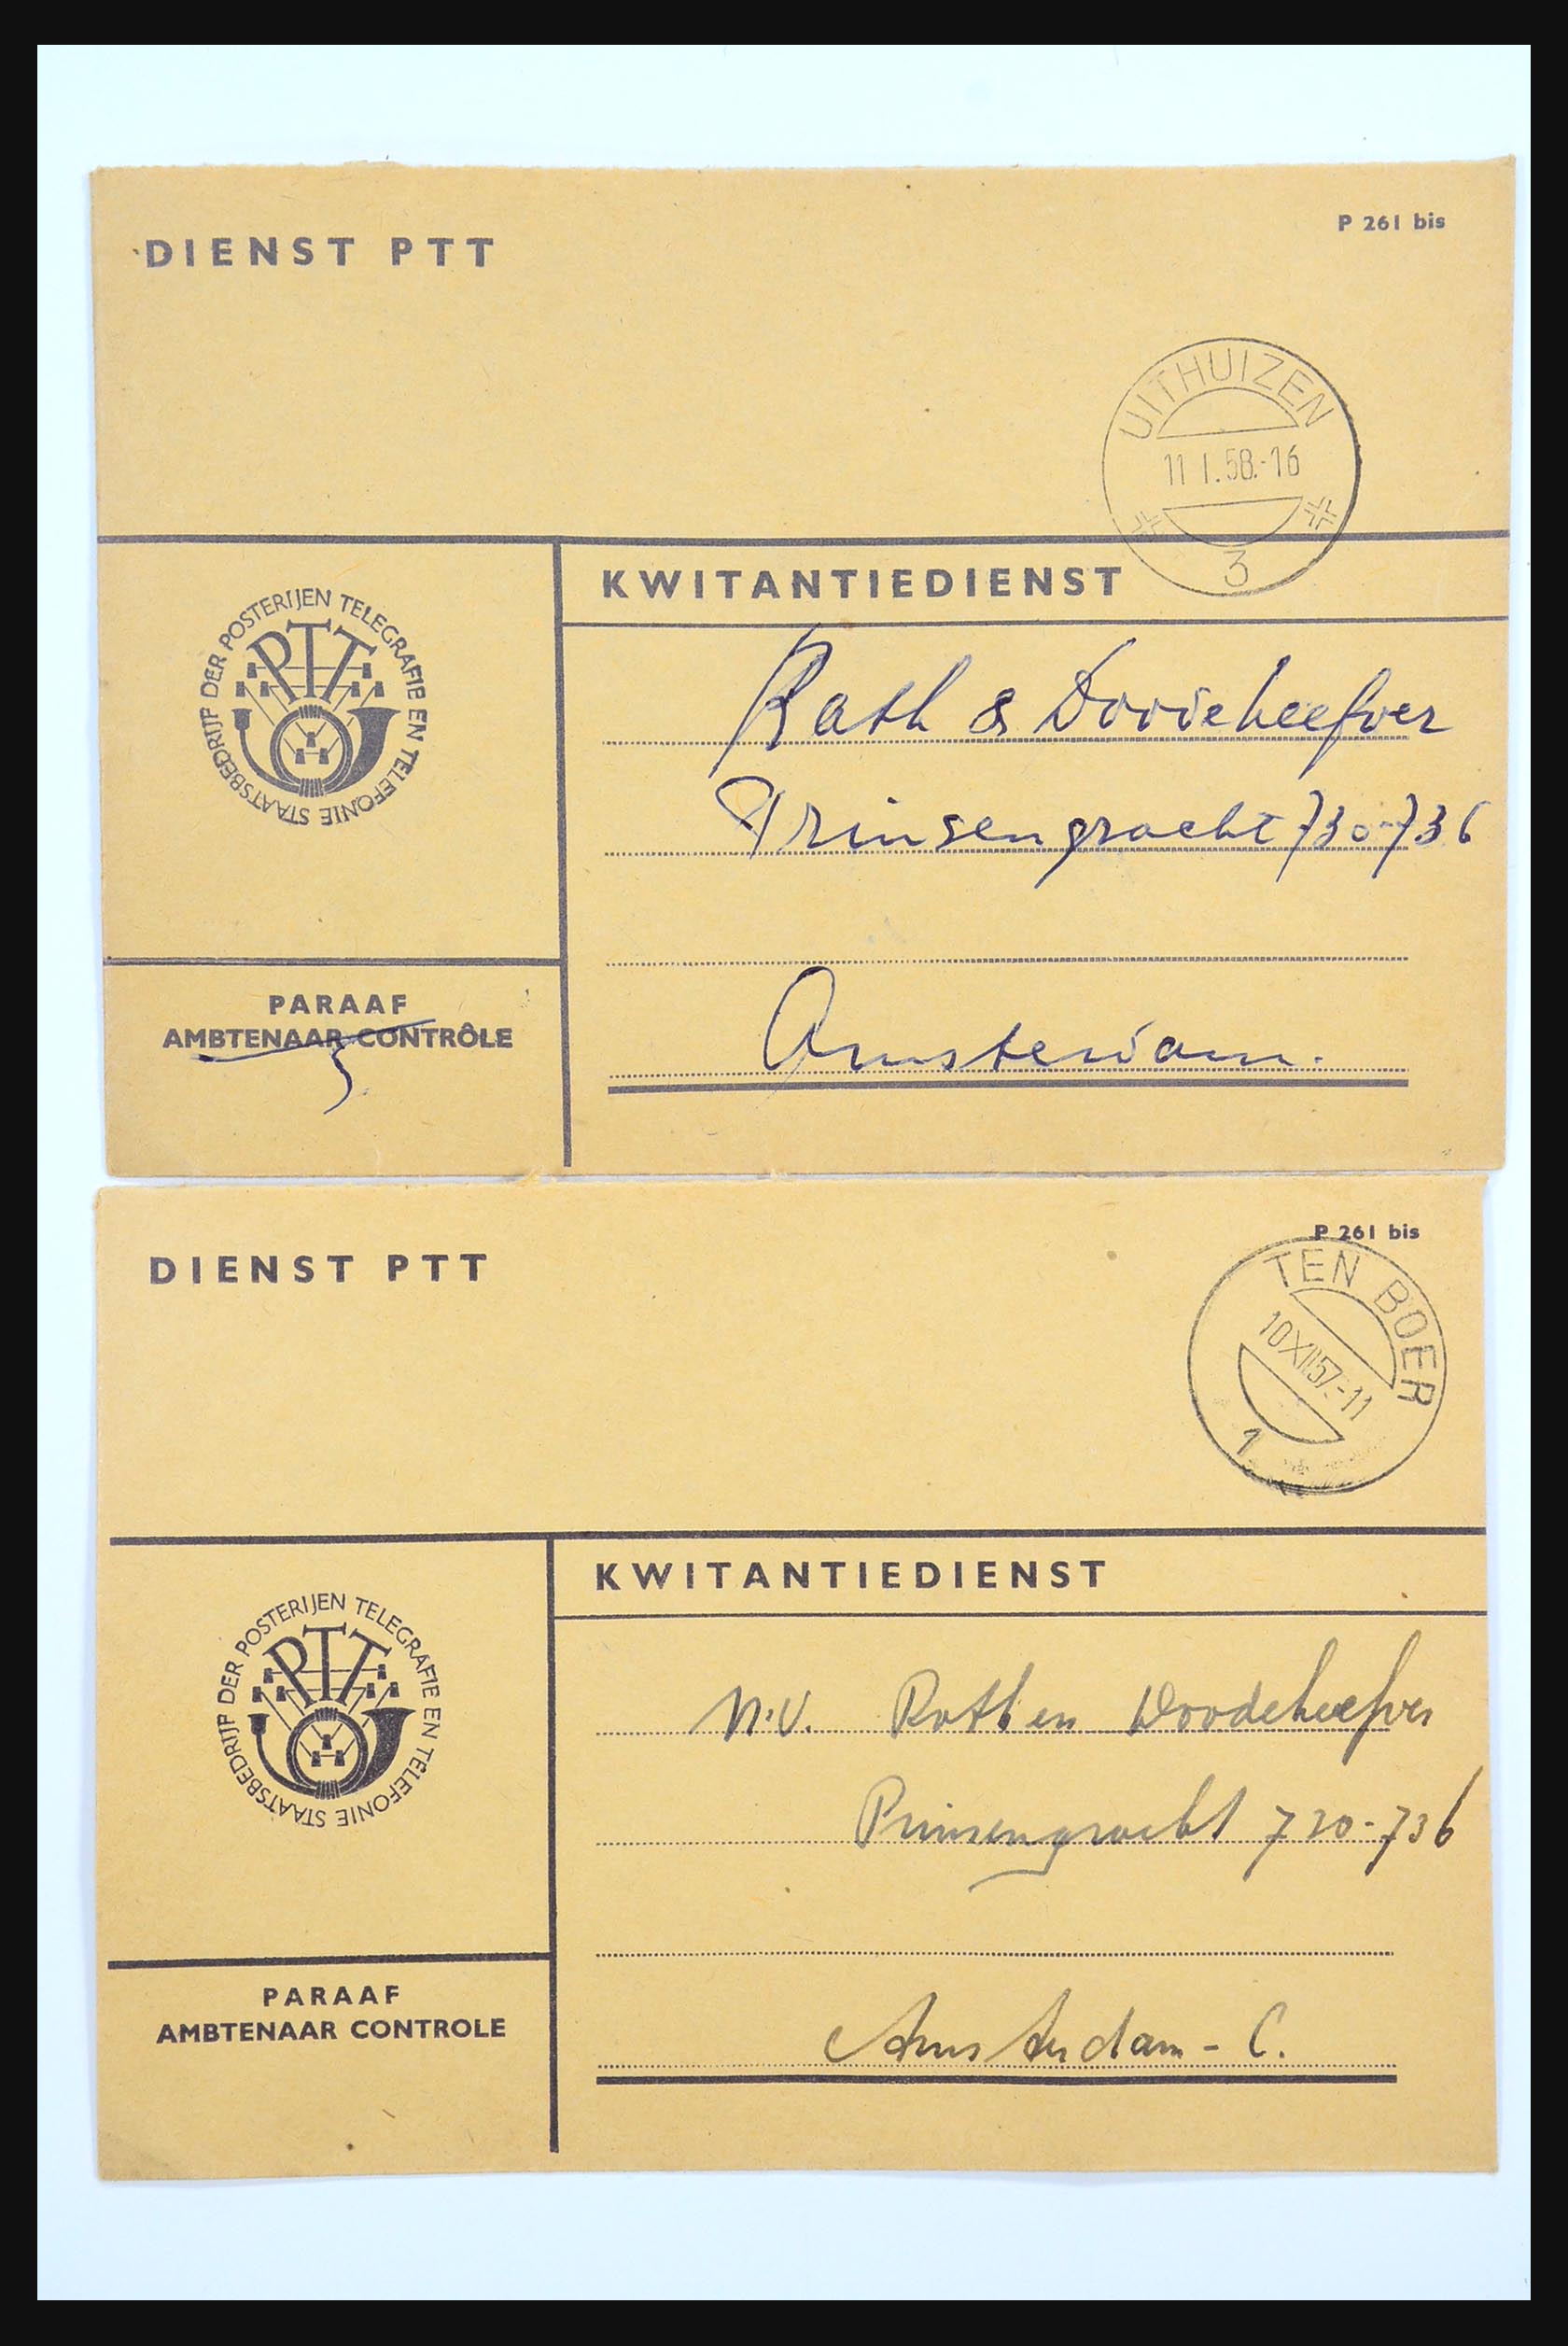 DIENST PTT
P 261 bis
UITHUIZEN
11 I.58.-16
3
KWITANTIEDIENST
STAATSBEDRIJF DER POSTERIJEN TELEGRAFIE EN TELEFONIE
PTT
Rath & Doodeheefver
Prinsengracht 730-736
PARAAF
AMBTENAAR CONTRÔLE
Amsterdam.
DIENST PTT
P 261 bis
TEN BOER
10XII57.-11
1
KWITANTIEDIENST
STAATSBEDRIJF DER POSTERIJEN TELEGRAFIE EN TELEFONIE
PTT
N.V. Rath en Doodeheefver
Prinsengracht 720-736
PARAAF
AMBTENAAR CONTROLE
Amsterdam - C.